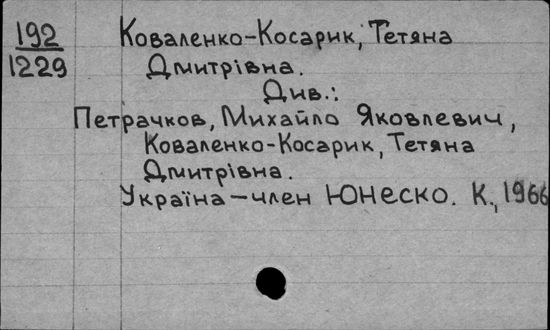 192
1229
Коваленко-Косарик, Тетяна
Дмитрівна.
Див.:
Петрачков, Михайло Яковлевич,
Коваленко-Косарик, Тетяна
Дмитрівна.
Україна – член Юнеско. К., 1966